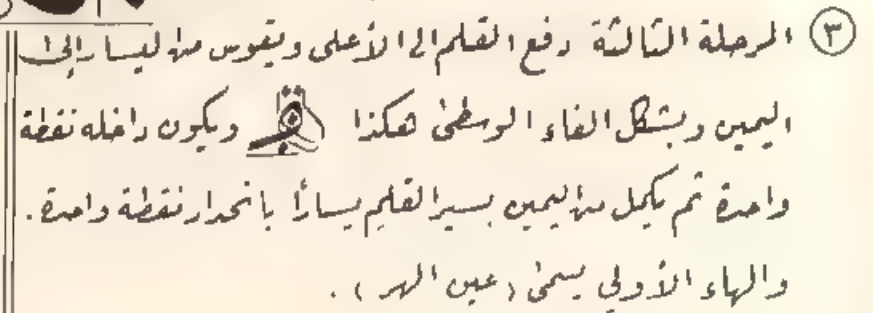 ٣ المرحلة الثالثة رفع القلم الى الأعلى ويقوس من ليسار إلى
اليمين وبشكل الفاء الوسطى هكذا ويكون داخله نقطة
واحدة ثم يكمل من اليمين بسير القلم يسارًا بانحدار نقطة واحدة.
والهاء الأولى يسمى (عين الهر).